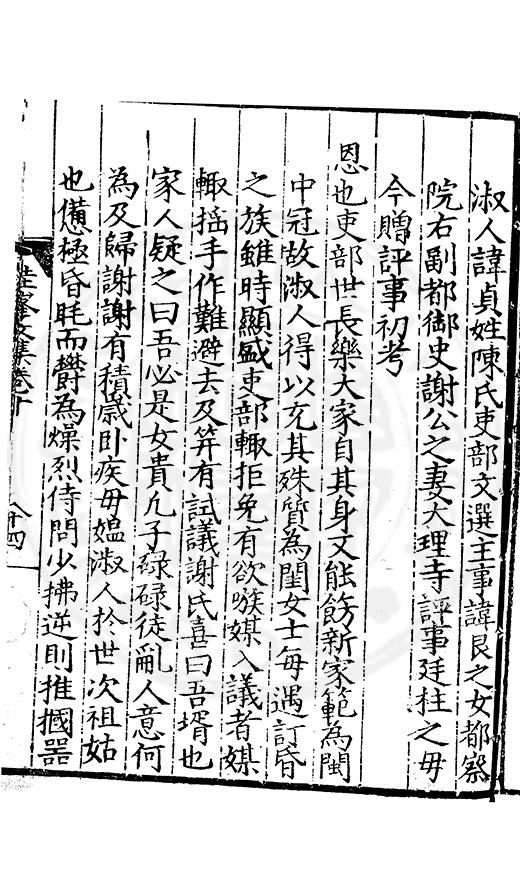 淑人諱貞姓陳氏吏部文選主事諱艮之女都察
院右副都御史謝公之妻大理寺評事廷柱之母
今贈評事初考
恩也吏部世長樂大家自其身文能飭新家範為閩
中冠故淑人得以充其殊質為閨女士每遇訂昏
之族雖時顯盛吏部輙拒免有欲嗾媒入議者媒
輙揺手作難避去及筓有試議謝氏喜曰吾壻也
家人疑之曰吾必是女貴凢子碌碌徒亂人意何
為及歸謝謝有積歲卧疾毋媪淑人扵世次祖姑
也憊極昏眊而欝為燥烈侍問少拂逆則推摑噐
文集卷十
廿四